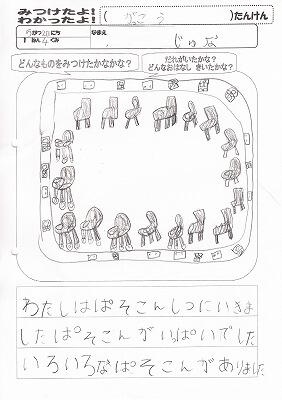 みつけたよ!
わかったよ!
(がっこう)たんけん
がつ にち
ねん くみ
なまえ
じゅな
どんなものをみつけたかなかな?
だれがいたかな?
どんなおはなし きいたかな?
わたしはぱそこんしつにいきま
したぱそこんがいっぱいでした
いろいろなぱそこんがありました